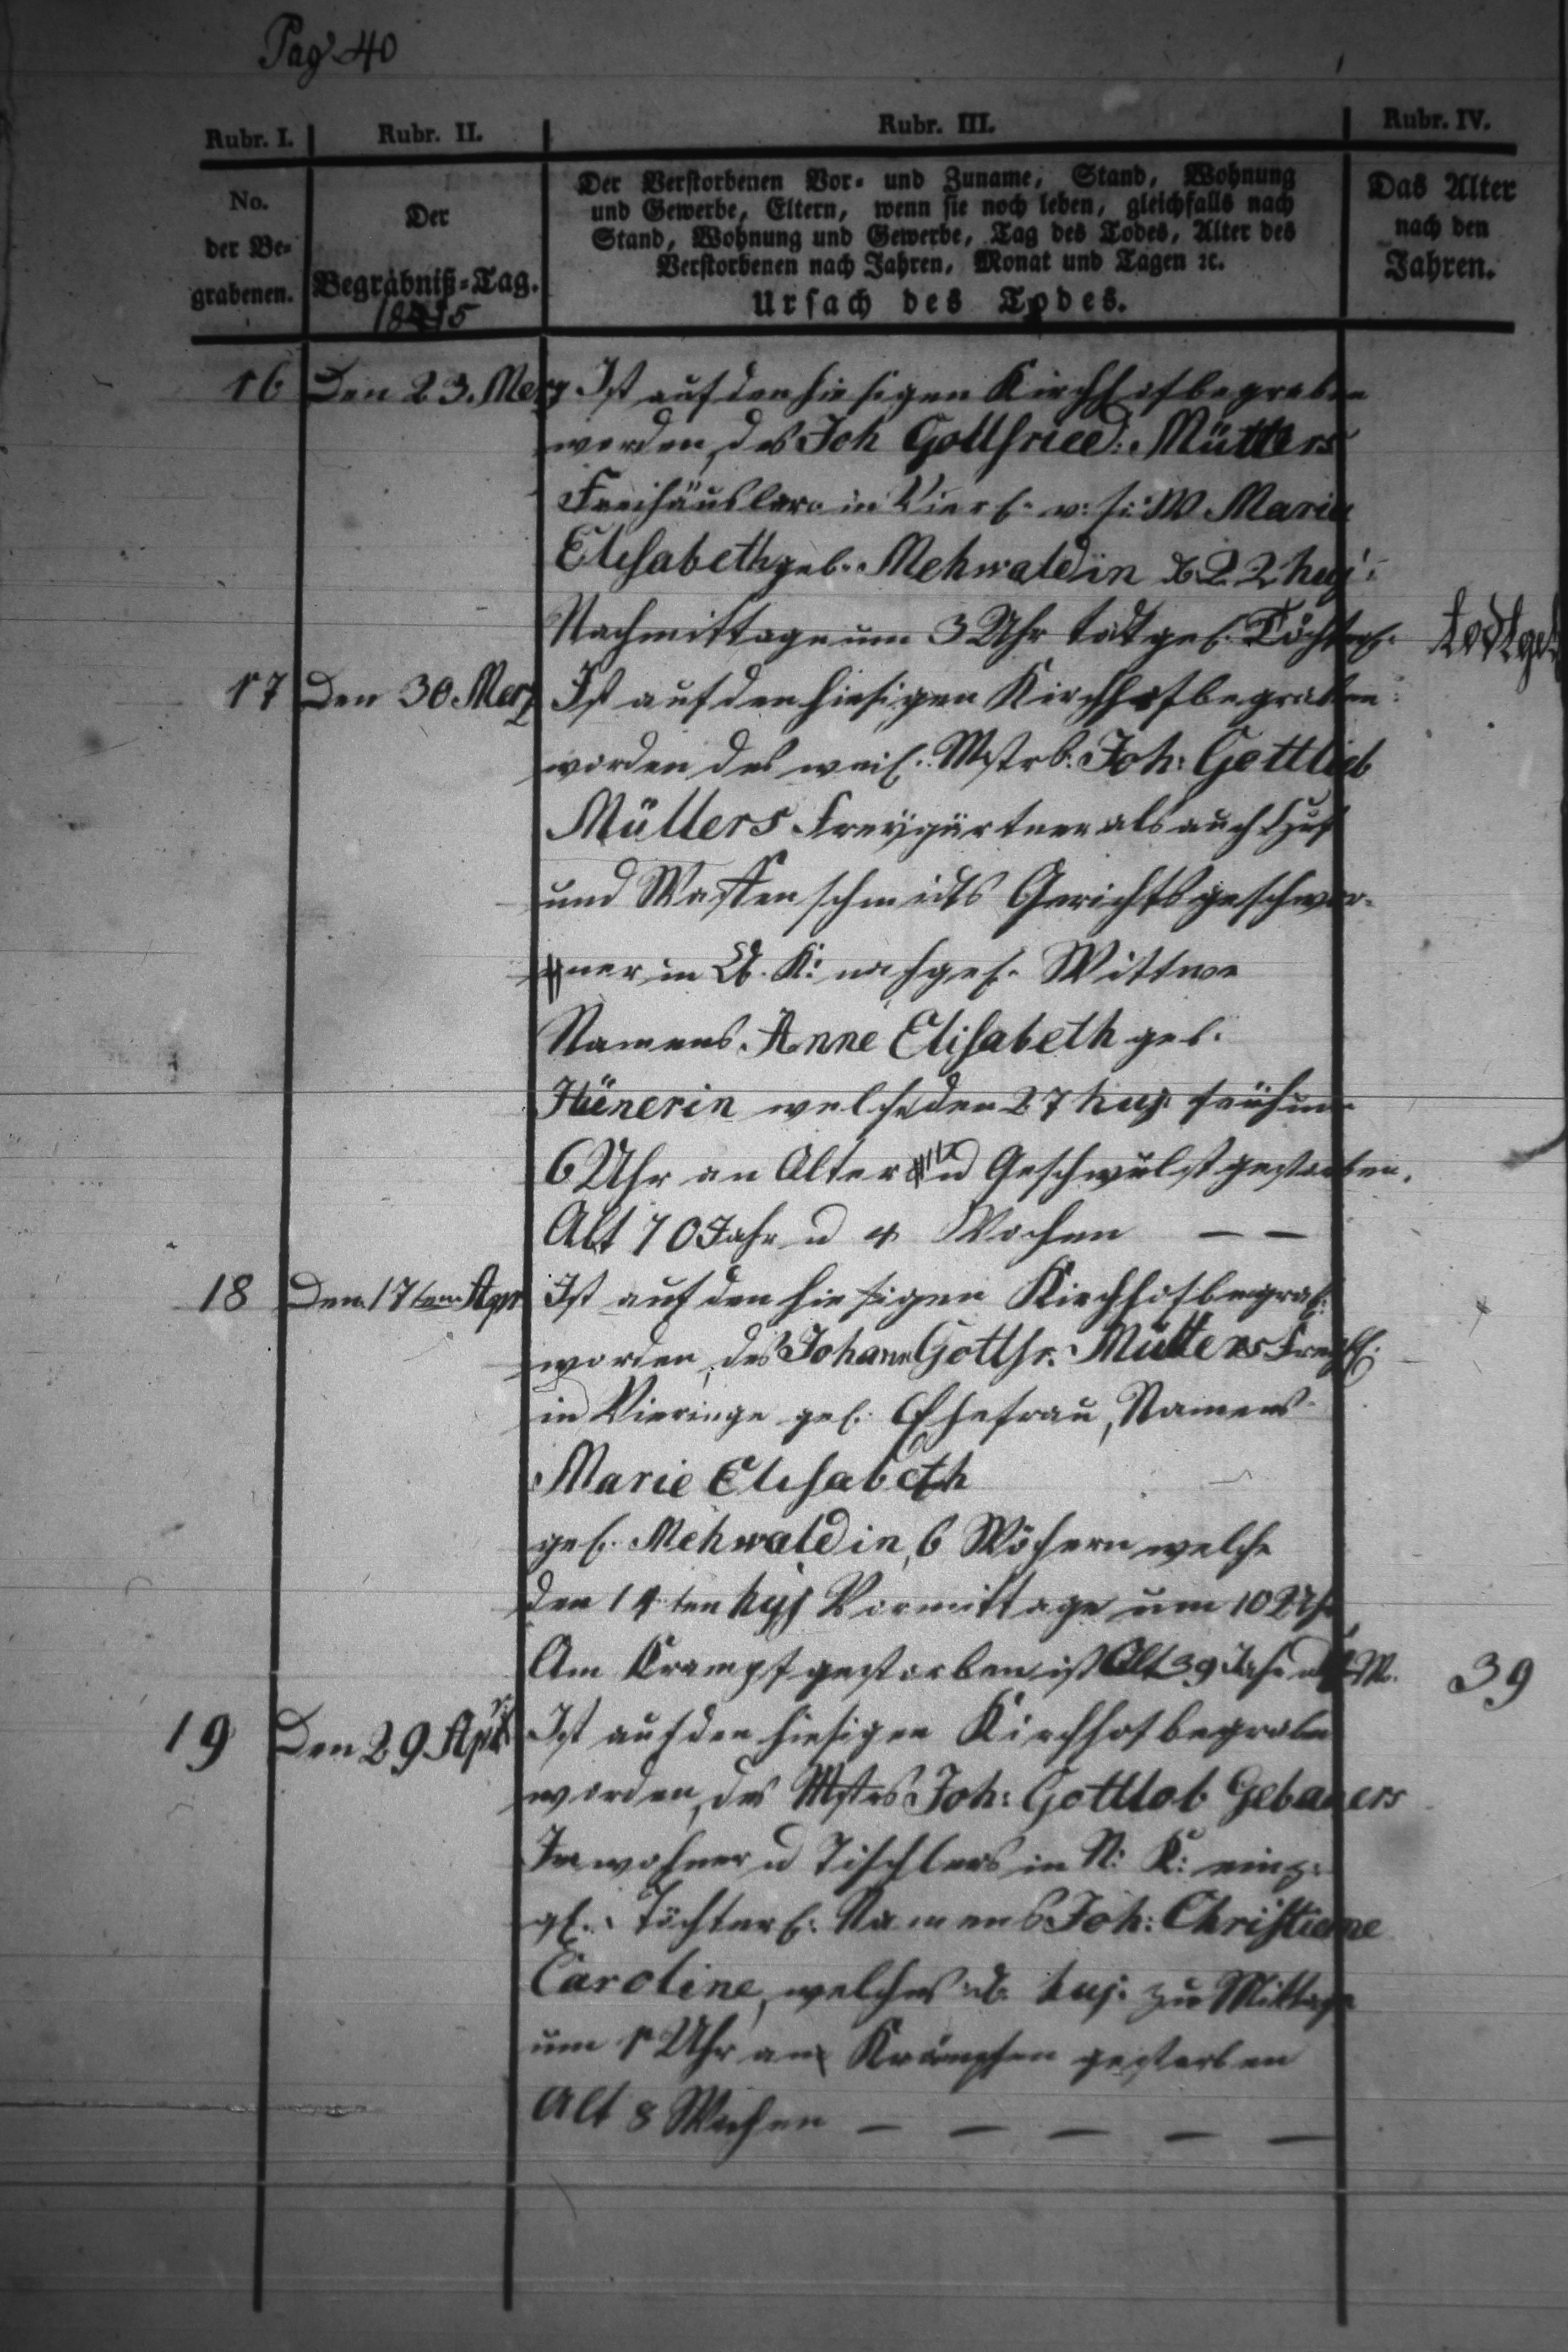 Pag 40
Rubr. I. Rubr. II. Rubr. III. Rubr. IV.
No.
der Be-
grabenen.
Der
Begräbniß-Tag.
Der Verstorbenen Vor- und Zuname, Stand, Wohnung
und Gewerbe, Eltern, wenn sie noch leben, gleichfalls nach
Stand, Wohnung und Gewerbe, Tag des Todes, Alter des
Verstorbenen nach Jahren, Monat und Tagen ꝛc.
Ursach des Todes.
Das Alter
nach den
Jahren.
16 Den 23. Merz Ist auf den hiesigen Kirchhof begraben
worden, des Joh Gottfried: Müllers
Freihäuslers in Vier v: s: W Maria
Elisabeth geb. Mehwaldin 22 huj:
Nachmittage um 3 Uhr todtgeb. Töchterl. todtgeb
17 Den 30 Merz Ist auf den hiesigen Kirchhof begraben
worden des weil. Mstrs. Joh: Gottlieb
Müllers Freygärtner als auch Huf
und Waffenschmidts Gerichtsgeschwor-
ner in K: nachgel. Wittwe
Namens Anne Elisabeth geb.
Hünerin welche den 27 huj. früh um
6 Uhr an Alter u Geschwulst gestorben.
Alt 70 Jahr u 4 Wochen — —
18 Den 17ten Apr Ist auf den hiesigen Kirchhof begrab:
worden, des Johann Gottfr. Müllers
in Vieringe gel. Ehefrau, Namens
Marie Elisabeth
geb. Mehwaldin, 6 Wöchern welche
den 14ten huj Vormittage um 10 Uhr
Am Krampf gestorben ist Alt 39 Jahr M. 39
19 Den 29 Apr Ist auf den hiesigen Kirchhof begraben
worden, des Mstrs Joh: Gottlob Gebauers
Inwohner u Tischlers in N: K: einz:
gl. Töchterl. Namens Joh: Christiane
Caroline, welches huj. zu Mittage
um 1 Uhr an Krämpfen gestorben
Alt 8 Wochen — — — — —